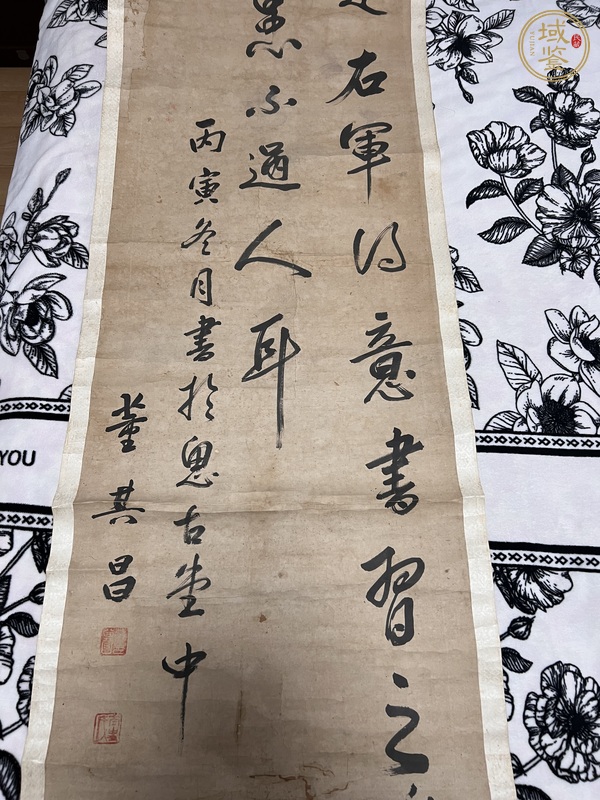 右軍得意書習之
患不過人耳
丙寅冬月書於思古堂中
董其昌
YOU
域鉴